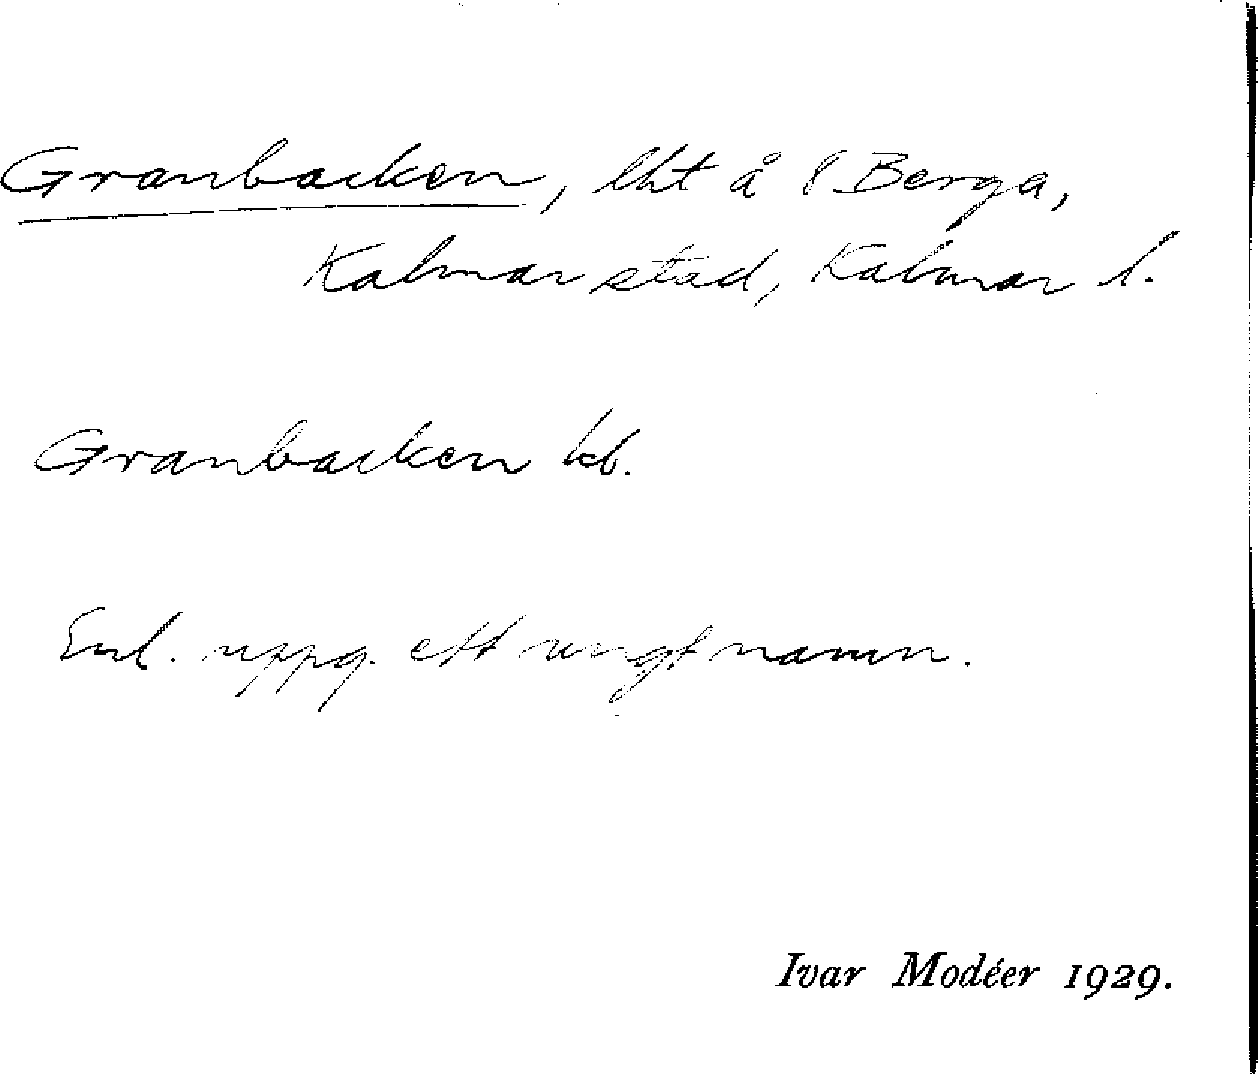 Granbacken, lht å 8 Berga,
Kalmar stad, Kalmar l.
Granbacken kb.
Enl. uppg. ett ungt namn.
Ivar Modéer 1929.